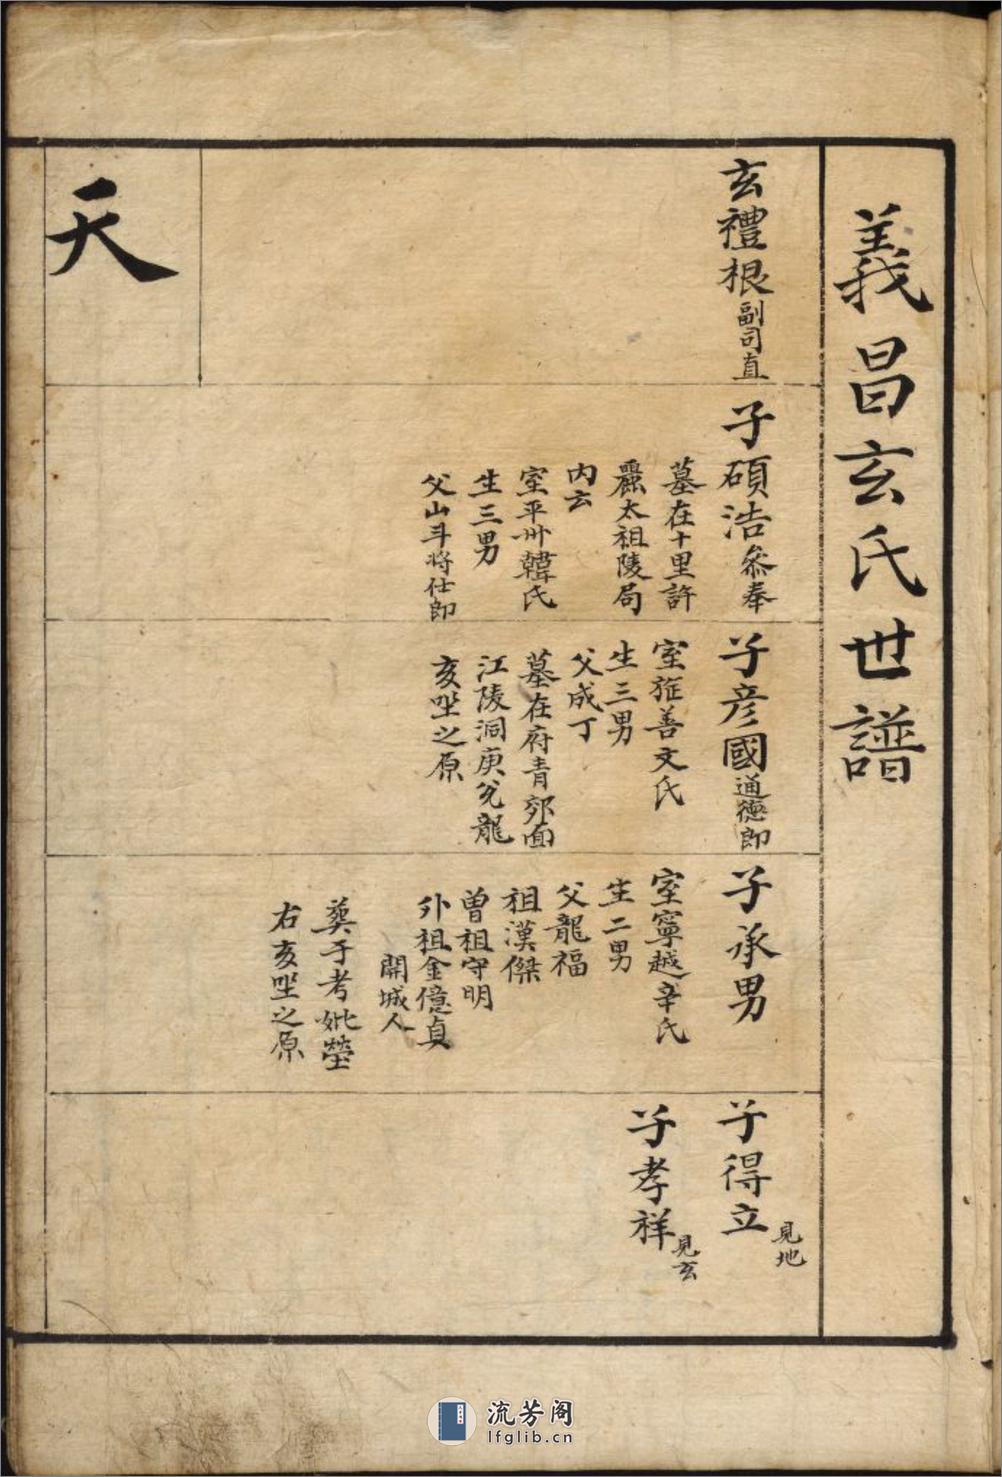 義昌玄氏世譜
玄禮根副司直
子碩浩叅奉
墓在十里許
麗太祖陵局
内云
室平州韓氏
生三男
父山斗將仕郎
子彦國通德郎
室旌善文氏
生三男
父成丁
墓在府青郊面
江陵洞庚兊龍
亥坐之原
子承男
室寧越辛氏
生二男
父龍福
祖漢傑
曽祖守明
外祖金億貞
開城人
葬于考妣塋
右亥坐之原
子得立見地
子孝祥見玄
天
流芳阁
lfglib.cn